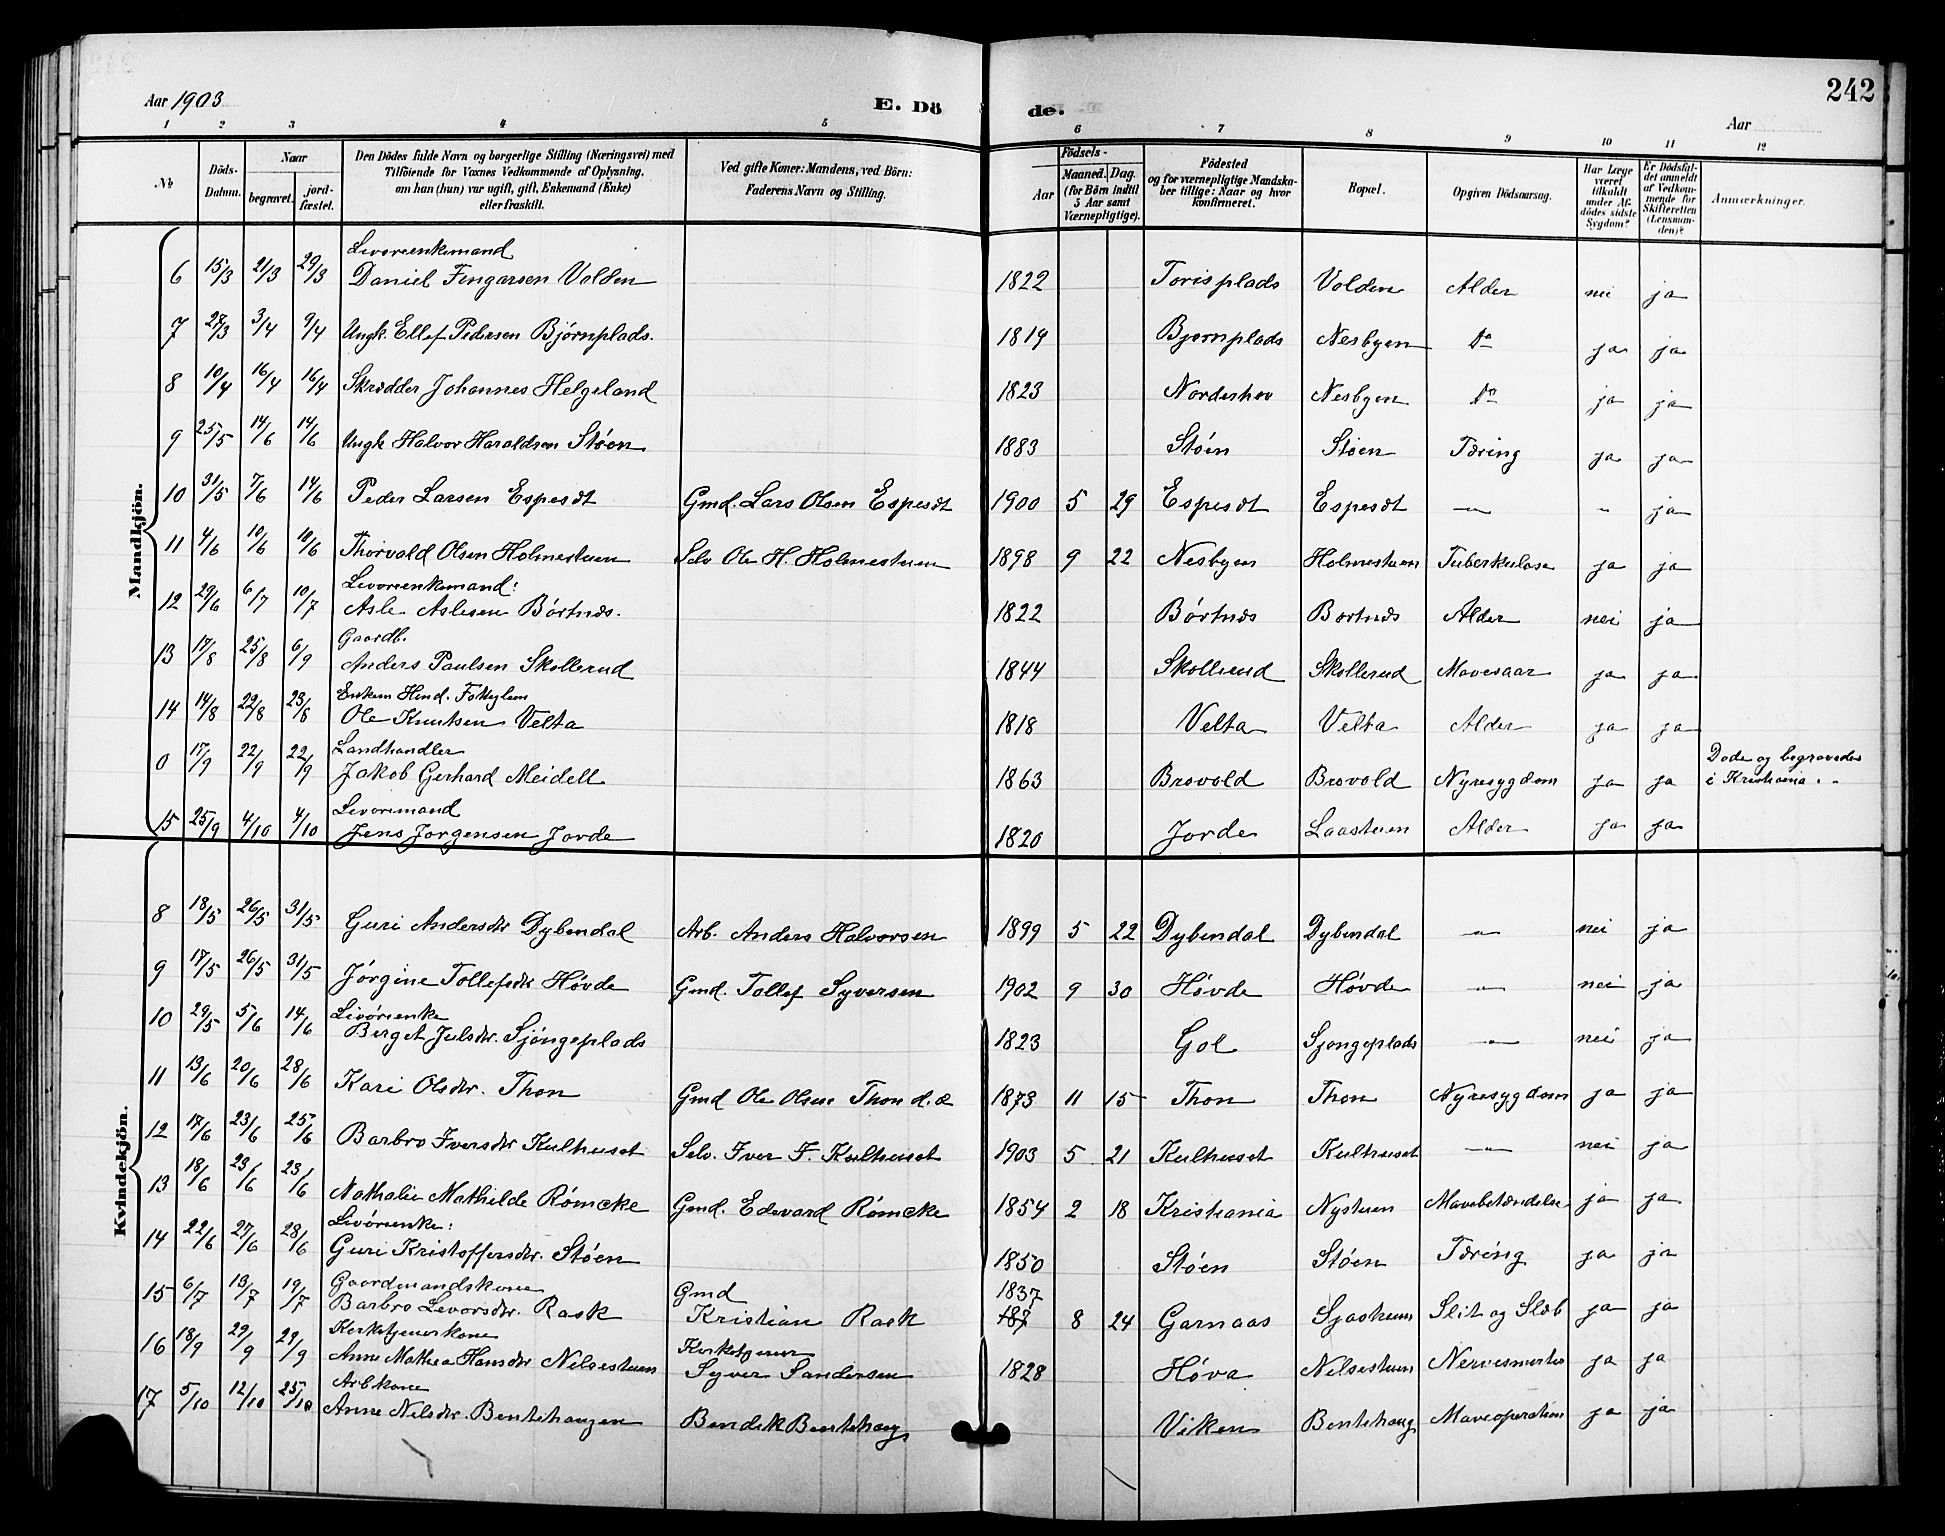 242
Aar 1903
E. Dö
de.
Aar
1 2 3 4 5 6 7 8 9 10 11 12
№
Döds-Datum.
Naar
begravet.
jordfæstet.
Den Dödes fulde Navn og borgerlige Stilling (Næringsvei) med
Tilföiende for Voxnes Vedkommende af Oplysning,
om han (hun) var ugift, gift, Enkemand (Enke)
eller fraskilt.
Ved gifte Koner: Mandens, ved Börn:
Faderens Navn og Stilling.
Födsels-
Aar
Maaned. Dag.
(for Börn indtil
5 Aar samt
Værnepligtige).
Födested
og for værnepligtige Mandska-
ber tillige: Naar og hvor
konfirmeret.
Bopæl.
Opgiven Dödsaarsag.
Har Læge
været
tilkaldt
under Af-
dödes sidste
Sygdom?
Er Dödsfal-
det anmeldt
af Vedkom-
mende for
Skifteretten
(Lensman-
den)?
Anmærkninger.
Mandkjön.
Levoreenkemand
6 15/3 21/3 29/3 Daniel Fingarsen Volden 1822 Torisplads Volden Alder nei ja
7 28/3 3/4 9/4 Ungk. Ellef Pedersen Björnplads. 1819 Bjornplads Nesbyen Do ja ja
8 10/4 16/4 16/4 Skrædder Johannes Helgeland 1823 Norderhov Nesbyen Do ja ja
9 25/5 14/6 14/6 Ungk Halvor Haraldsen Støen 1883 Støen Støen Tæring ja ja
10 31/5 7/6 14/6 Peder Larsen Espesdt Gmd. Lars Olsen Espesdt 1900 5 29 Espesdt Espesdt — " — " ja
11 4/6 10/6 10/6 Thorvald Olsen Holmestuen Selv Ole H. Holmestuen 1898 9 22 Nesbyen Holmestuen Tuberkulose ja ja
Levoreenkemand:
12 29/6 6/7 10/7 Asle Aslesen Børtnæs. 1822 Børtnæs Bortnæs Alder nei ja
Gaardb.
13 17/8 25/8 6/9 Anders Paulsen Skollerud 1844 Skollerud Skollerud Mavesaar ja ja
Enkem
14 14/8 22/8 23/8 Ole Knutsen Velta 1818 Velta Velta Alder ja ja
Landhandler
0 17/9 22/9 22/9 Jakob Gerhard Meidell 1863 Brovold Brovold Nyresygdom ja ja Døde og begravedes
i Kristiania.
Levoremand
15 25/9 4/10 4/10 Jens Jorgensen Jorde 1820 Jorde Laastuen Alder ja ja
Kvindekjön.
8 18/5 26/5 31/5 Guri Andersdtr Dybendal Arb. Anders Halvorsen 1899 5 22 Dybendal Dybendal — " — nei ja
9 17/5 26/5 31/5 Jørgine Tollefsdtr Høvde Gmd. Tollef Syversen 1902 9 30 Høvde Høvde — " — nei ja
Levórienke
10 29/5 5/6 14/6 Berget Julsdtr. Sjöngeplads 1823 Gol Sjongeplads — " — nei ja
11 13/6 20/6 28/6 Kari Olsdtr. Thon Gmd Ole Olsen Thon d.æ 1873 11 15 Thon Thon Nyresygdom ja ja
12 17/6 23/6 25/6 Barbro Iversdtr Kulhuset Selv. Iver F. Kulhuset 1903 5 21 Kulhuset Kulhuset — " — nei ja
13 18/6 23/6 23/6 Nathalie Mathilde Rømcke Gmd. Edevard Rømcke 1854 2 18 Kristiania Nystuen Mavebetændelse ja ja
Levórienke:
14 22/6 27/6 28/6 Guri Kristoffersdtr. Støen 1850 Støen Støen Tæring ja ja
Gaardmandskone Gmd 1837
15 6/7 13/7 19/7 Barbro Levorsdtr. Rask Kristian Rask 187 8 24 Garnaas Sjastuen Slit og Slæb ja ja
Kirketjenerkone Kirketjener
16 18/9 29/9 29/9 Anne Mathea Hansdtr Nelsestuen Syver Sandersen 1828 Høva Nelsestuen Nervesmerter ja ja
Arbkone
17 5/10 12/10 25/10 Anne Nelsdtr. Bentehaugen Bendik Bentehaug Viken Bentehaug Maveoperation ja ja